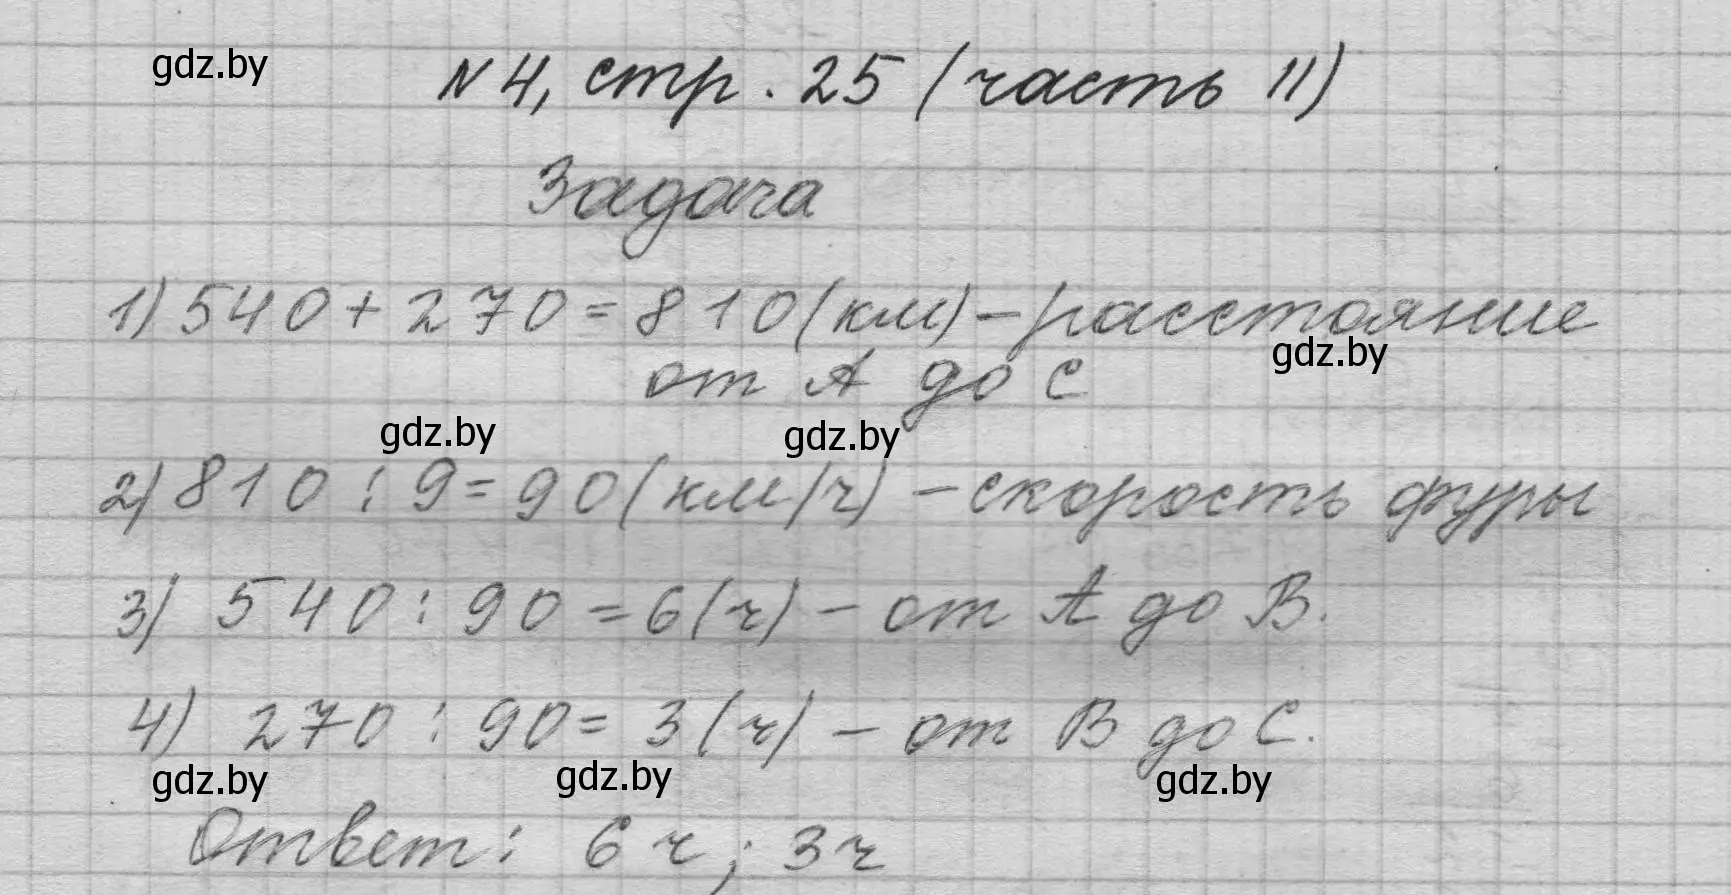 gdz.by
N 4, стр. 25 (часть II)
Задача
1) 540 + 270 = 810 (км) – расстояние
gdz.by
от А до С
gdz.by gdz.by
2) 810 : 9 = 90 (км/ч) – скорость фуры
3) 540 : 90 = 6 (ч) – от А до В.
4) 270 : 90 = 3 (ч) – от В до С.
gdz.by gdz.by gdz.by
Ответ: 6 ч; 3 ч